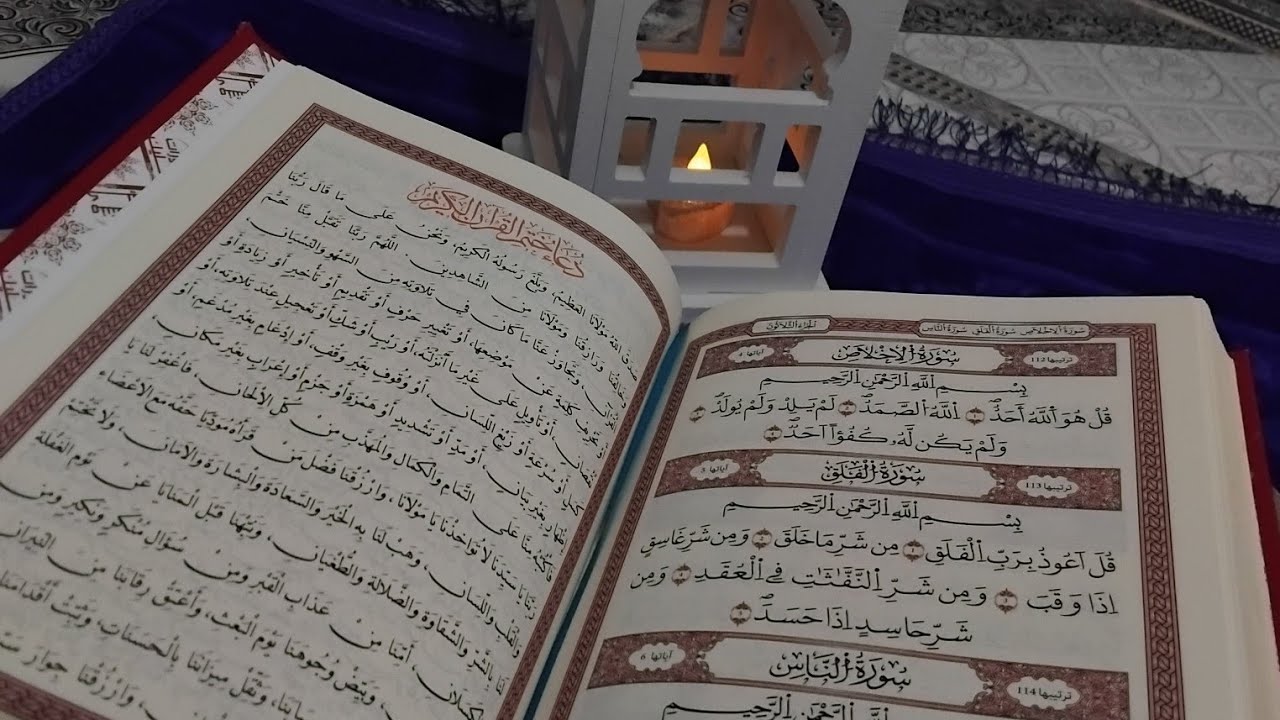 سورة الإخلاص سورة الفلق سورة الناس
الجزء الثلاثون
ترتيبها 112 سُورَةُ الْإِخْلَاصِ آياتها 4
بِسْمِ اللَّهِ الرَّحْمَٰنِ الرَّحِيمِ
قُلْ هُوَ اللَّهُ أَحَدٌ اللَّهُ الصَّمَدُ لَمْ يَلِدْ وَلَمْ يُولَدْ
وَلَمْ يَكُن لَّهُ كُفُوًا أَحَدٌ
ترتيبها 113 سُورَةُ الْفَلَقِ آياتها 5
بِسْمِ اللَّهِ الرَّحْمَٰنِ الرَّحِيمِ
قُلْ أَعُوذُ بِرَبِّ الْفَلَقِ مِن شَرِّ مَا خَلَقَ وَمِن شَرِّ غَاسِقٍ
إِذَا وَقَبَ وَمِن شَرِّ النَّفَّاثَاتِ فِي الْعُقَدِ وَمِن
شَرِّ حَاسِدٍ إِذَا حَسَدَ
ترتيبها 114 سُورَةُ النَّاسِ آياتها 6
بِسْمِ اللَّهِ الرَّحْمَٰنِ الرَّحِيمِ
دعاء ختم القرآن الكريم
الله مولانا العظيم، وبلغ رسوله الكريم، ونحن على ما قال ربنا
وخالقنا ورازقنا ومولانا من الشاهدين. اللهم ربنا تقبل منا ختم
القرآن، وتجاوز عنا ما كان في تلاوته من السهو والنسيان أو
تحريف كلمة عن موضعها، أو تغيير حرف أو تقديم أو تأخير أو زيادة أو
نقصان، أو تأويل على غير ما أنزلته، أو ريب أو شك أو تعجيل عند تلاوته، أو
كسل أو سرعة أو زيغ اللسان، أو وقوف بغير وقف، أو إدغام بغير مدغم، أو
إظهار بغير بيان، أو مد أو تشديد أو همزة أو جزم أو إعراب بغير مكان،
فاكتبه منا على التمام والكمال والمهذب من كل الألحان، فاغفر لنا يا
ربنا يا سيدنا لا تؤاخذنا يا مولانا، وارزقنا فضل من قرأه مؤديا حقه مع الأعضاء
والقلب واللسان، وهب لنا به الخير والسعادة والبشارة والأمان، ولا تختم
لنا بالشر والشقاوة والضلالة والطغيان، ونبهنا قبل المنايا عن نوم الغفلة
والكسلان، أمنا من عذاب القبر ومن سؤال منكر ونكير ومن
وبيض وجوهنا يوم البعث، وأعتق رقابنا من النيران
وثقل ميزاننا بالحسنات، وثبت أقدامنا
وارزقنا جوار